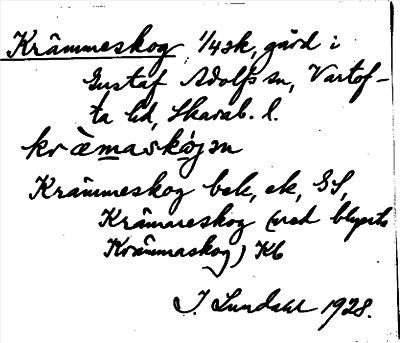 Krämmeskog 1/4 sk, gård i
Gustaf Adolfs sn, Vartof-
ta hd, Skarab. l.
kræ̀maskó̱gən
Krämmeskog bek, ek, GS,
Krämmeskog (med blyerts
Krämmaskog) Kb
J. Lundahl 1928.